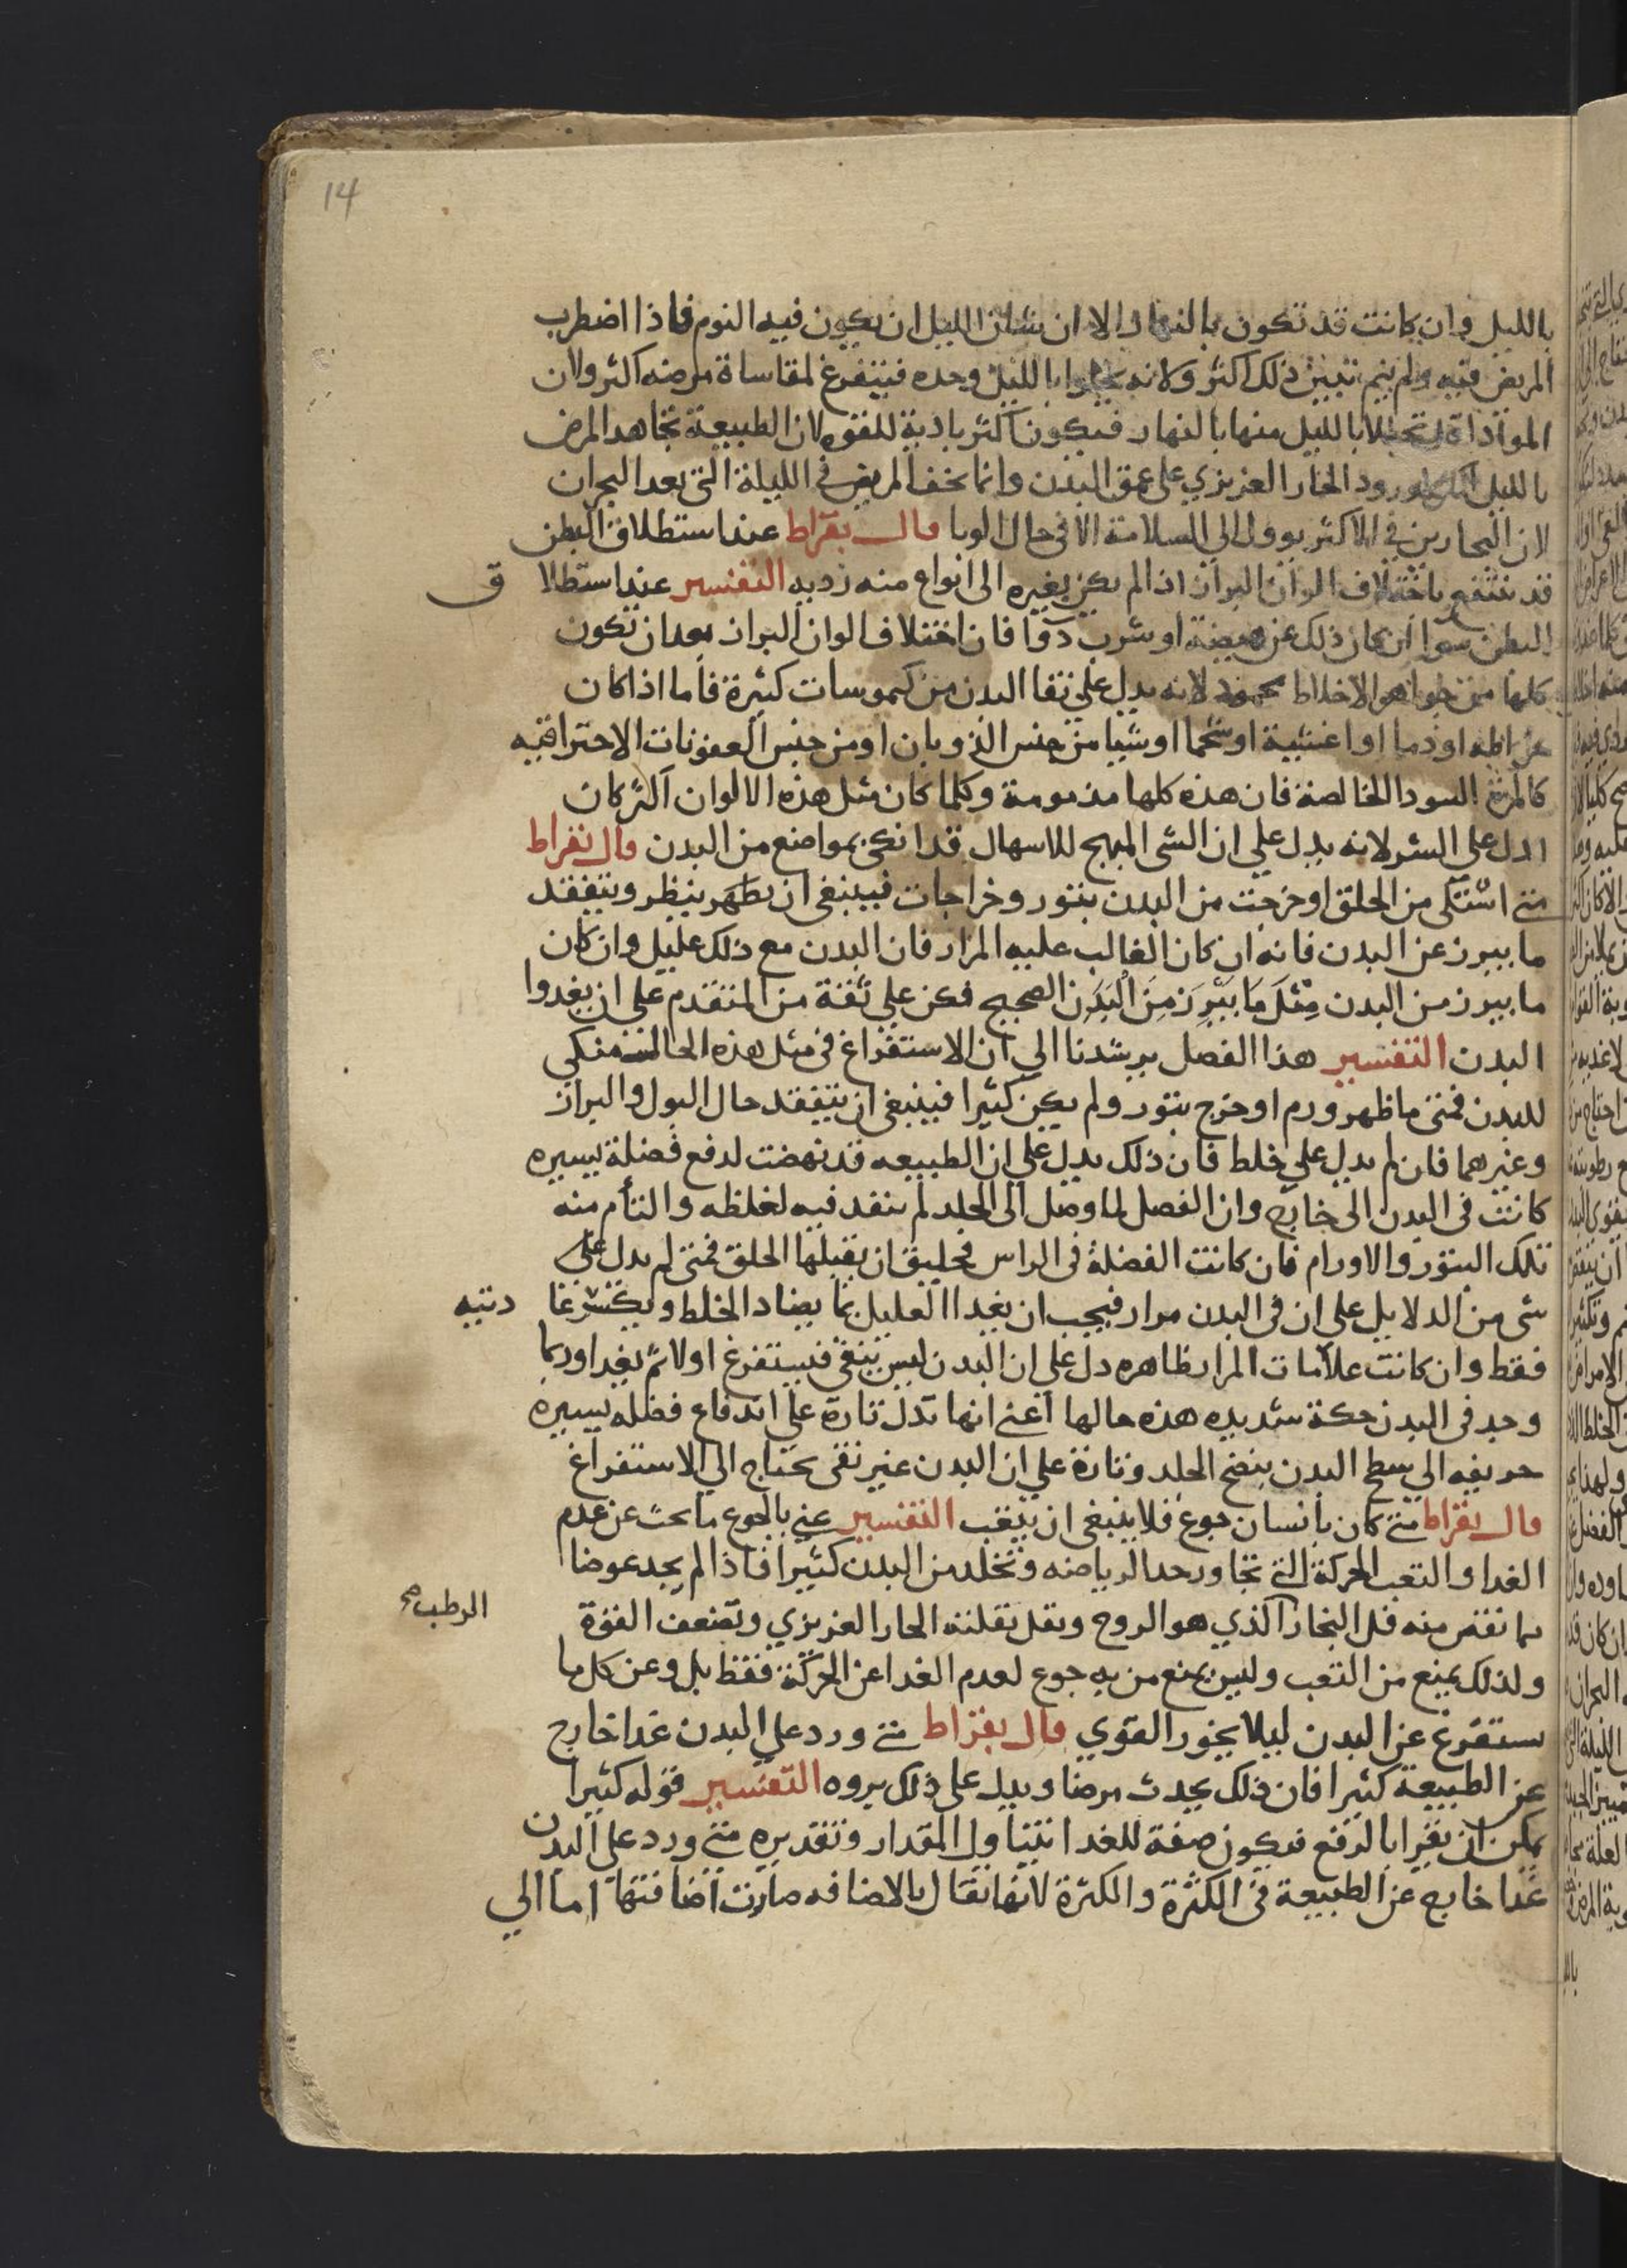 14
بالليل وان كانت قد تكون بالنهار الا ان شان الليل ان يكون فيه النوم فاذا اضطرب
المريض فيه ولم ينم تبين ذلك اكثر ولانه يخلوا بالليل وحده فيتفرغ لمقاساة مرضه اكثر ولان
المواد اقل تحللا بالليل منها بالنهار فيكون اكثر بادية للقوه لان الطبيعة تجاهد المرض
بالليل ورود الحار الغريزي على عمق البدن وانما يخف المريض في الليلة التي بعد البحران
لان البحارين في الاكثر يوول الى السلامة الا في حال الوبا قال بقراط عند استطلاق البطن
قد ينتفع باختلاف الوان البراز اذا لم يكن يغيره الى انواع منه رديه التفسير عند استطلا ق
البطن سوا ان كان ذلك عن هيضة او شرب دوا فان اختلاف الوان البراز بعد ان تكون
كلها من جواهر الاخلاط محمود لانه يدل على نقا البدن من كيموسات كثيرة فاما اذا كان
خراطه او دما او اغشية او شحما او شيا من جنس الذوبان او من جنس العفونات الاحتراقيه
كالمرة السودا الخالصة فان هذه كلها مذمومة وكلما كان مثل هذه الالوان اكثر كان
ادل على الشر لانه يدل على ان الشى المهيج للاسهال قد انكى بمواضع من البدن قال بقراط
متى اشتكى من الحلق او خرجت من البدن بثور وخراجات فينبغى ان يظهر ينظر ويتفقد
ما يبرز عن البدن فانه ان كان الغالب عليه المرار فان البدن مع ذلك عليل وان كان
ما يبرز من البدن مِثْلَ مَا يَبْرِزَ مِنَ الْبَدَنِ الصحيح فكن على ثقة من المتقدم على ان يغدوا
البدن التفسير هذا الفصل يرشدنا الى ان الاستفراغ فى مثل هذه الحال منكى
للبدن فمتى ما ظهر ورم او خرج بثور ولم يكن كثيرا فينبغى ان يتفقد حال البول والبراز
وغيرهما فان لم يدل على خلط فان ذلك يدل على ان الطبيعه قد نهضت لدفع فضلة يسيره
كانت فى البدن الى خارج وان الفصل لما وصل الى الجلد لم ينفد فيه لغلظه والتأم منه
تلك البثور والاورام فان كانت الفضلة فى الراس فخليق ان يقبلها الحلق فمتى لم يدل على
شى من الدلايل على ان فى البدن مرار فيجب ان يغدا العليل بما يضاد الخلط ويكسر عا ديتيه
فقط وان كانت علامات المرار ظاهره دل على ان البدن ليس بنقى فيستفرغ اولا ثم يغدا وربما
وجد فى البدن حكة شديده هذه حالها اعنى انها تدل تارة على اندفاع فضله يسيره
حريفه الى سطح البدن بنضح الجلد وتارة على ان البدن غير نقى يحتاج الى الاستفراغ
قال بقراط متى كان بانسان جوع فلا ينبغى ان يتعب التفسير عنى بالجوع ما يحث عن عدم
الغدا والتعب الحركة التى تجاوز حد الرياضه وتحلل من البدن كثيرا فاذا لم يجد عوضا
مما نقص منه قل البخار الذي هو الروح ويقل بقلته الحار الغريزي وتضعف القوة
الرطب صح
ولذلك يمنع من التعب وليس يمنع من به جوع لعدم الغدا عن الحركة فقط بل وعن كل ما
يستفرغ عن البدن ليلا يخور القوي قال بقراط متى ورد على البدن غدا خارج
عن الطبيعة كثيرا فان ذلك يحدث مرضا ويدل على ذلك بروه التفسير قوله كثيرا
يمكن ان يقرا بالرفع فيكون صفة للغدا تتناول المقدار وتقديره متى ورد على البدن
غدا خارج عن الطبيعة فى الكثرة والكثرة لانها تقال بالاضافه صارت اضافتها اما الى